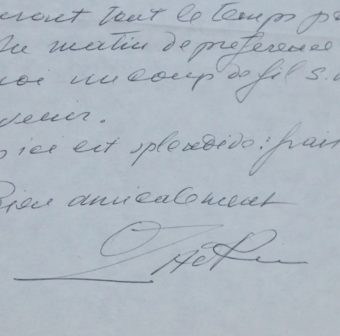 tout le temps
matin de préférence
un coup de fil s.
venir.
ici est splendide : frais
Bien amicalement